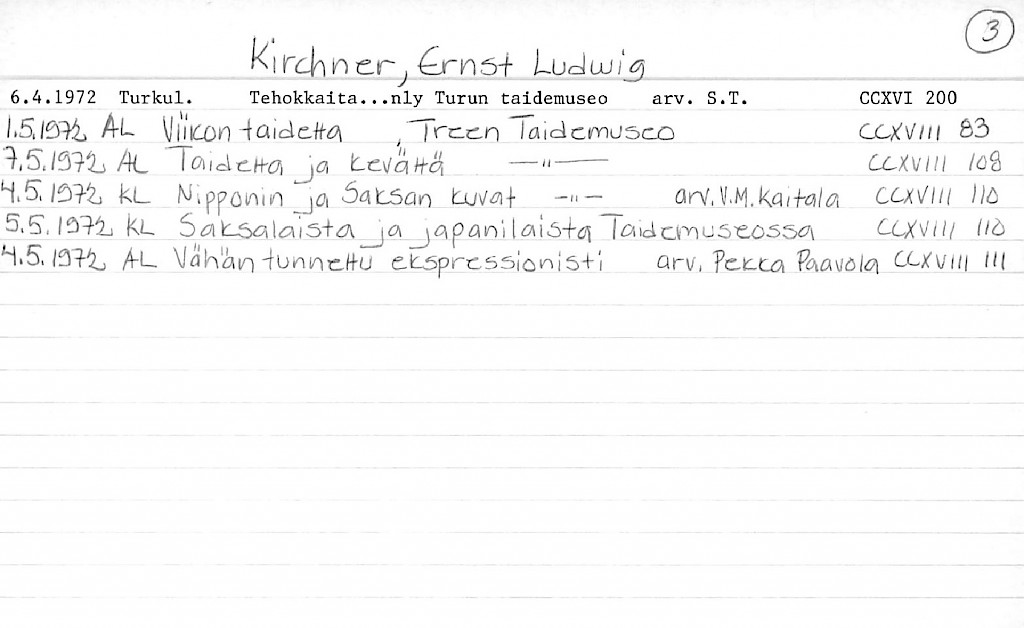 3
Kirchner, Ernst Ludwig
6.4.1972 Turkul. Tehokkaita...nly Turun taidemuseo arv. S.T. CCXVI 200
1.5.1972 AL Viikon taidetta , Treen Taidemuseo CCXVIII 83
7.5.1972 AL Taidetta ja kevättä —"— CCXVIII 108
4.5.1972 KL Nipponin ja Saksan kuvat —"— arv. V.M. Kaitala CCXVIII 110
5.5.1972 KL Saksalaista ja japanilaista Taidemuseossa CCXVIII 110
4.5.1972 AL Vähän tunnettu ekspressionisti arv. Pekka Paavola CCXVIII 111